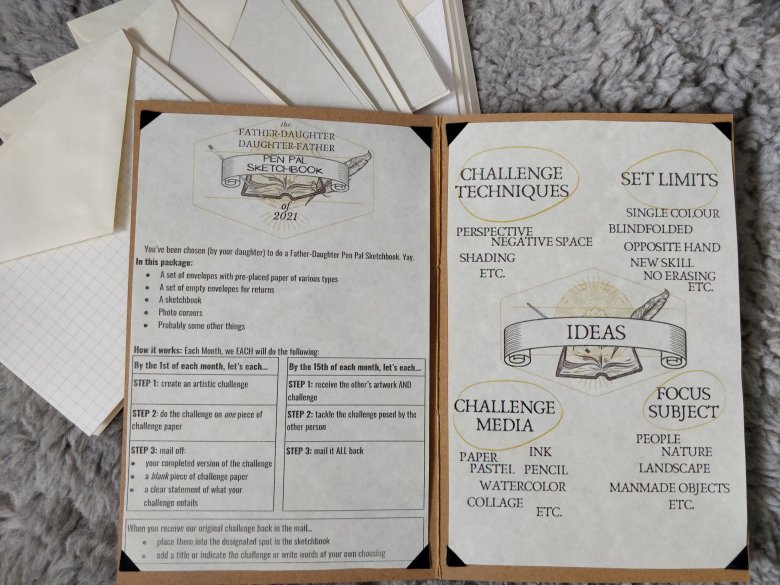 the
FATHER-DAUGHTER
DAUGHTER-FATHER
PEN PAL
SKETCHBOOK
of
2021
You've been chosen (by your daughter) to do a Father-Daughter Pen Pal Sketchbook. Yay.
In this package:
• A set of envelopes with pre-placed paper of various types
• A set of empty envelopes for returns
• A sketchbook
• Photo corners
• Probably some other things
How it works: Each Month, we EACH will do the following:
By the 1st of each month, let's each...
STEP 1: create an artistic challenge
STEP 2: do the challenge on one piece of
challenge paper
STEP 3: mail off:
• your completed version of the challenge
• a blank piece of challenge paper
• a clear statement of what your
challenge entails
By the 15th of each month, let's each...
STEP 1: receive the other's artwork AND
challenge
STEP 2: tackle the challenge posed by the
other person
STEP 3: mail it ALL back
When you receive our original challenge back in the mail...
• place them into the designated spot in the sketchbook
• add a title or indicate the challenge or write words of your own choosing
CHALLENGE
TECHNIQUES
PERSPECTIVE
NEGATIVE SPACE
SHADING
ETC.
SET LIMITS
SINGLE COLOUR
BLINDFOLDED
OPPOSITE HAND
NEW SKILL
NO ERASING
ETC.
IDEAS
CHALLENGE
MEDIA
PAPER INK
PASTEL PENCIL
WATERCOLOR
COLLAGE
ETC.
FOCUS
SUBJECT
PEOPLE
NATURE
LANDSCAPE
MANMADE OBJECTS
ETC.